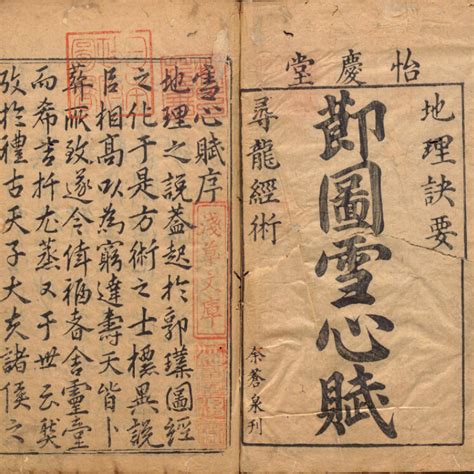 怡慶堂
地理訣要
莭圖雪心賦
尋龍經術
余蒼泉刊
雪心賦序
地理之說蓋起於郭璞圖經
之化于是方術之士標異說
相高以為窮達壽夭皆卜
葬所致遂令舍靈堂
而希吉扦尤蒸又于世云
攷於禮古天子大夫諸侯之
淺草文庫